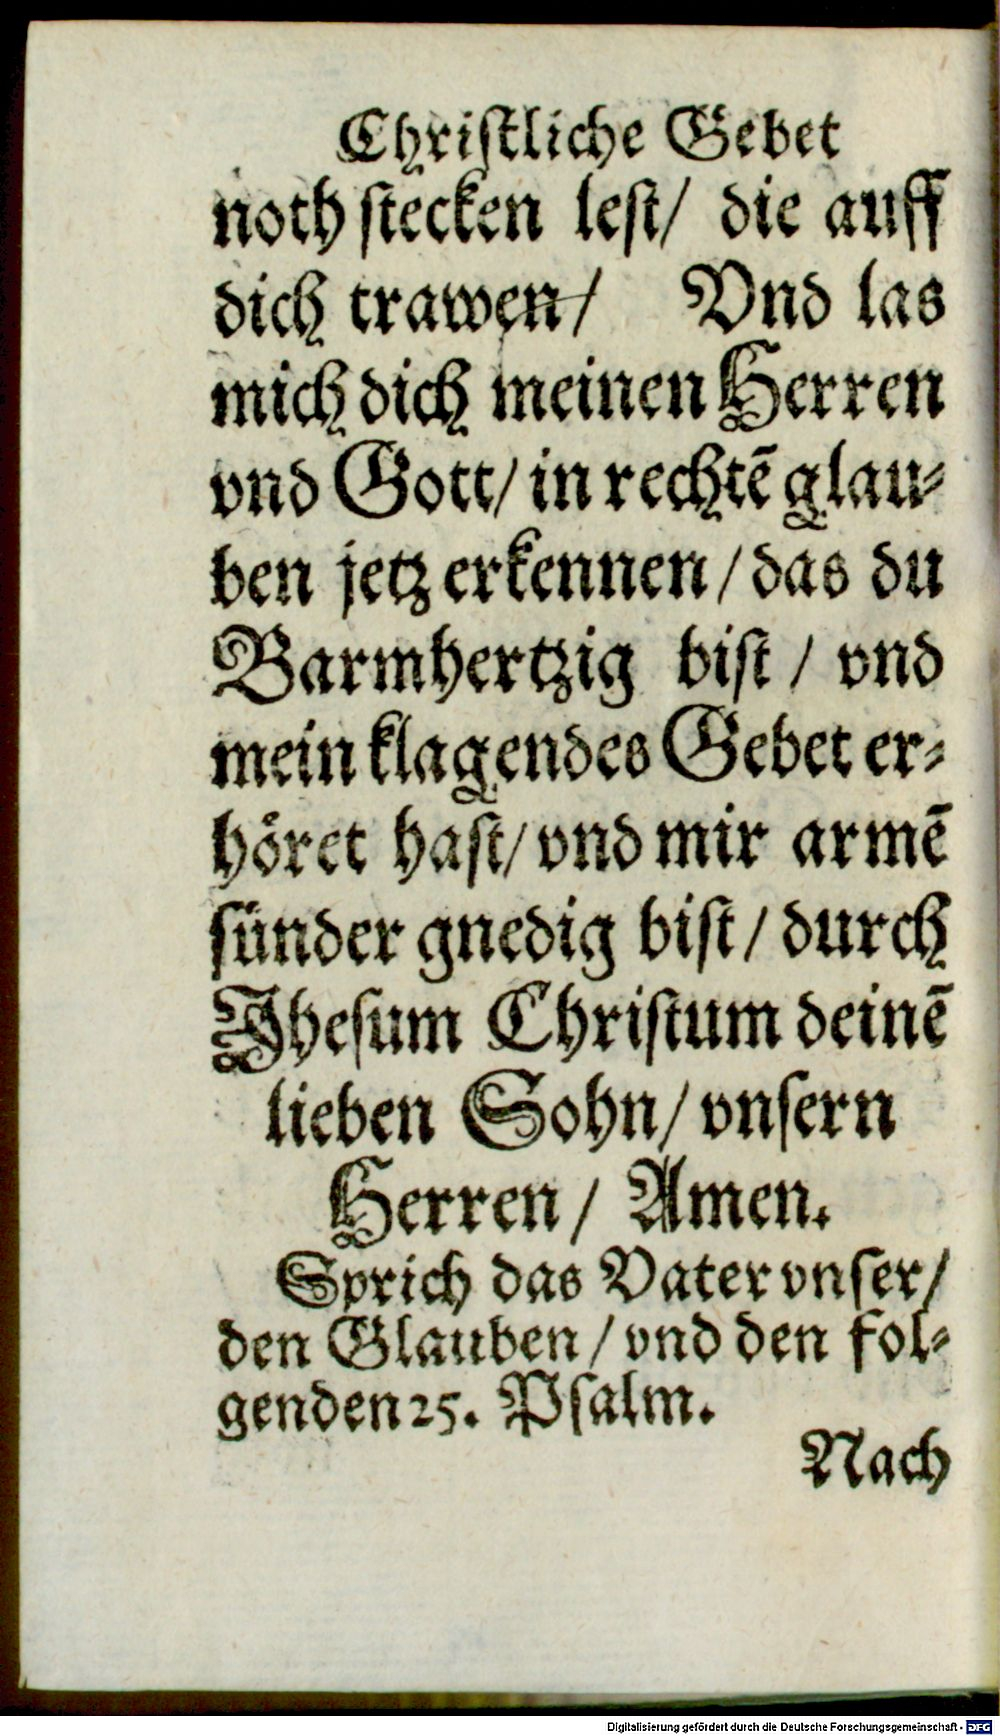 Christliche Gebet
noth stecken lest/ die auff
dich trawen/ Vnd las
mich dich meinen Herren
vnd Gott/ in rechtẽ glau⸗
ben jetz erkennen/ das du
Barmhertzig bist/ vnd
mein klagendes Gebet er⸗
höret hast/ vnd mir armẽ
sünder gnedig bist/ durch
Jhesum Christum deinẽ
lieben Sohn/ vnsern
Herren/ Amen.
Sprich das Vater vnser/
den Glauben/ vnd den fol⸗
genden 25. Psalm.
Nach
Digitalisierung gefördert durch die Deutsche Forschungsgemeinschaft - DFG